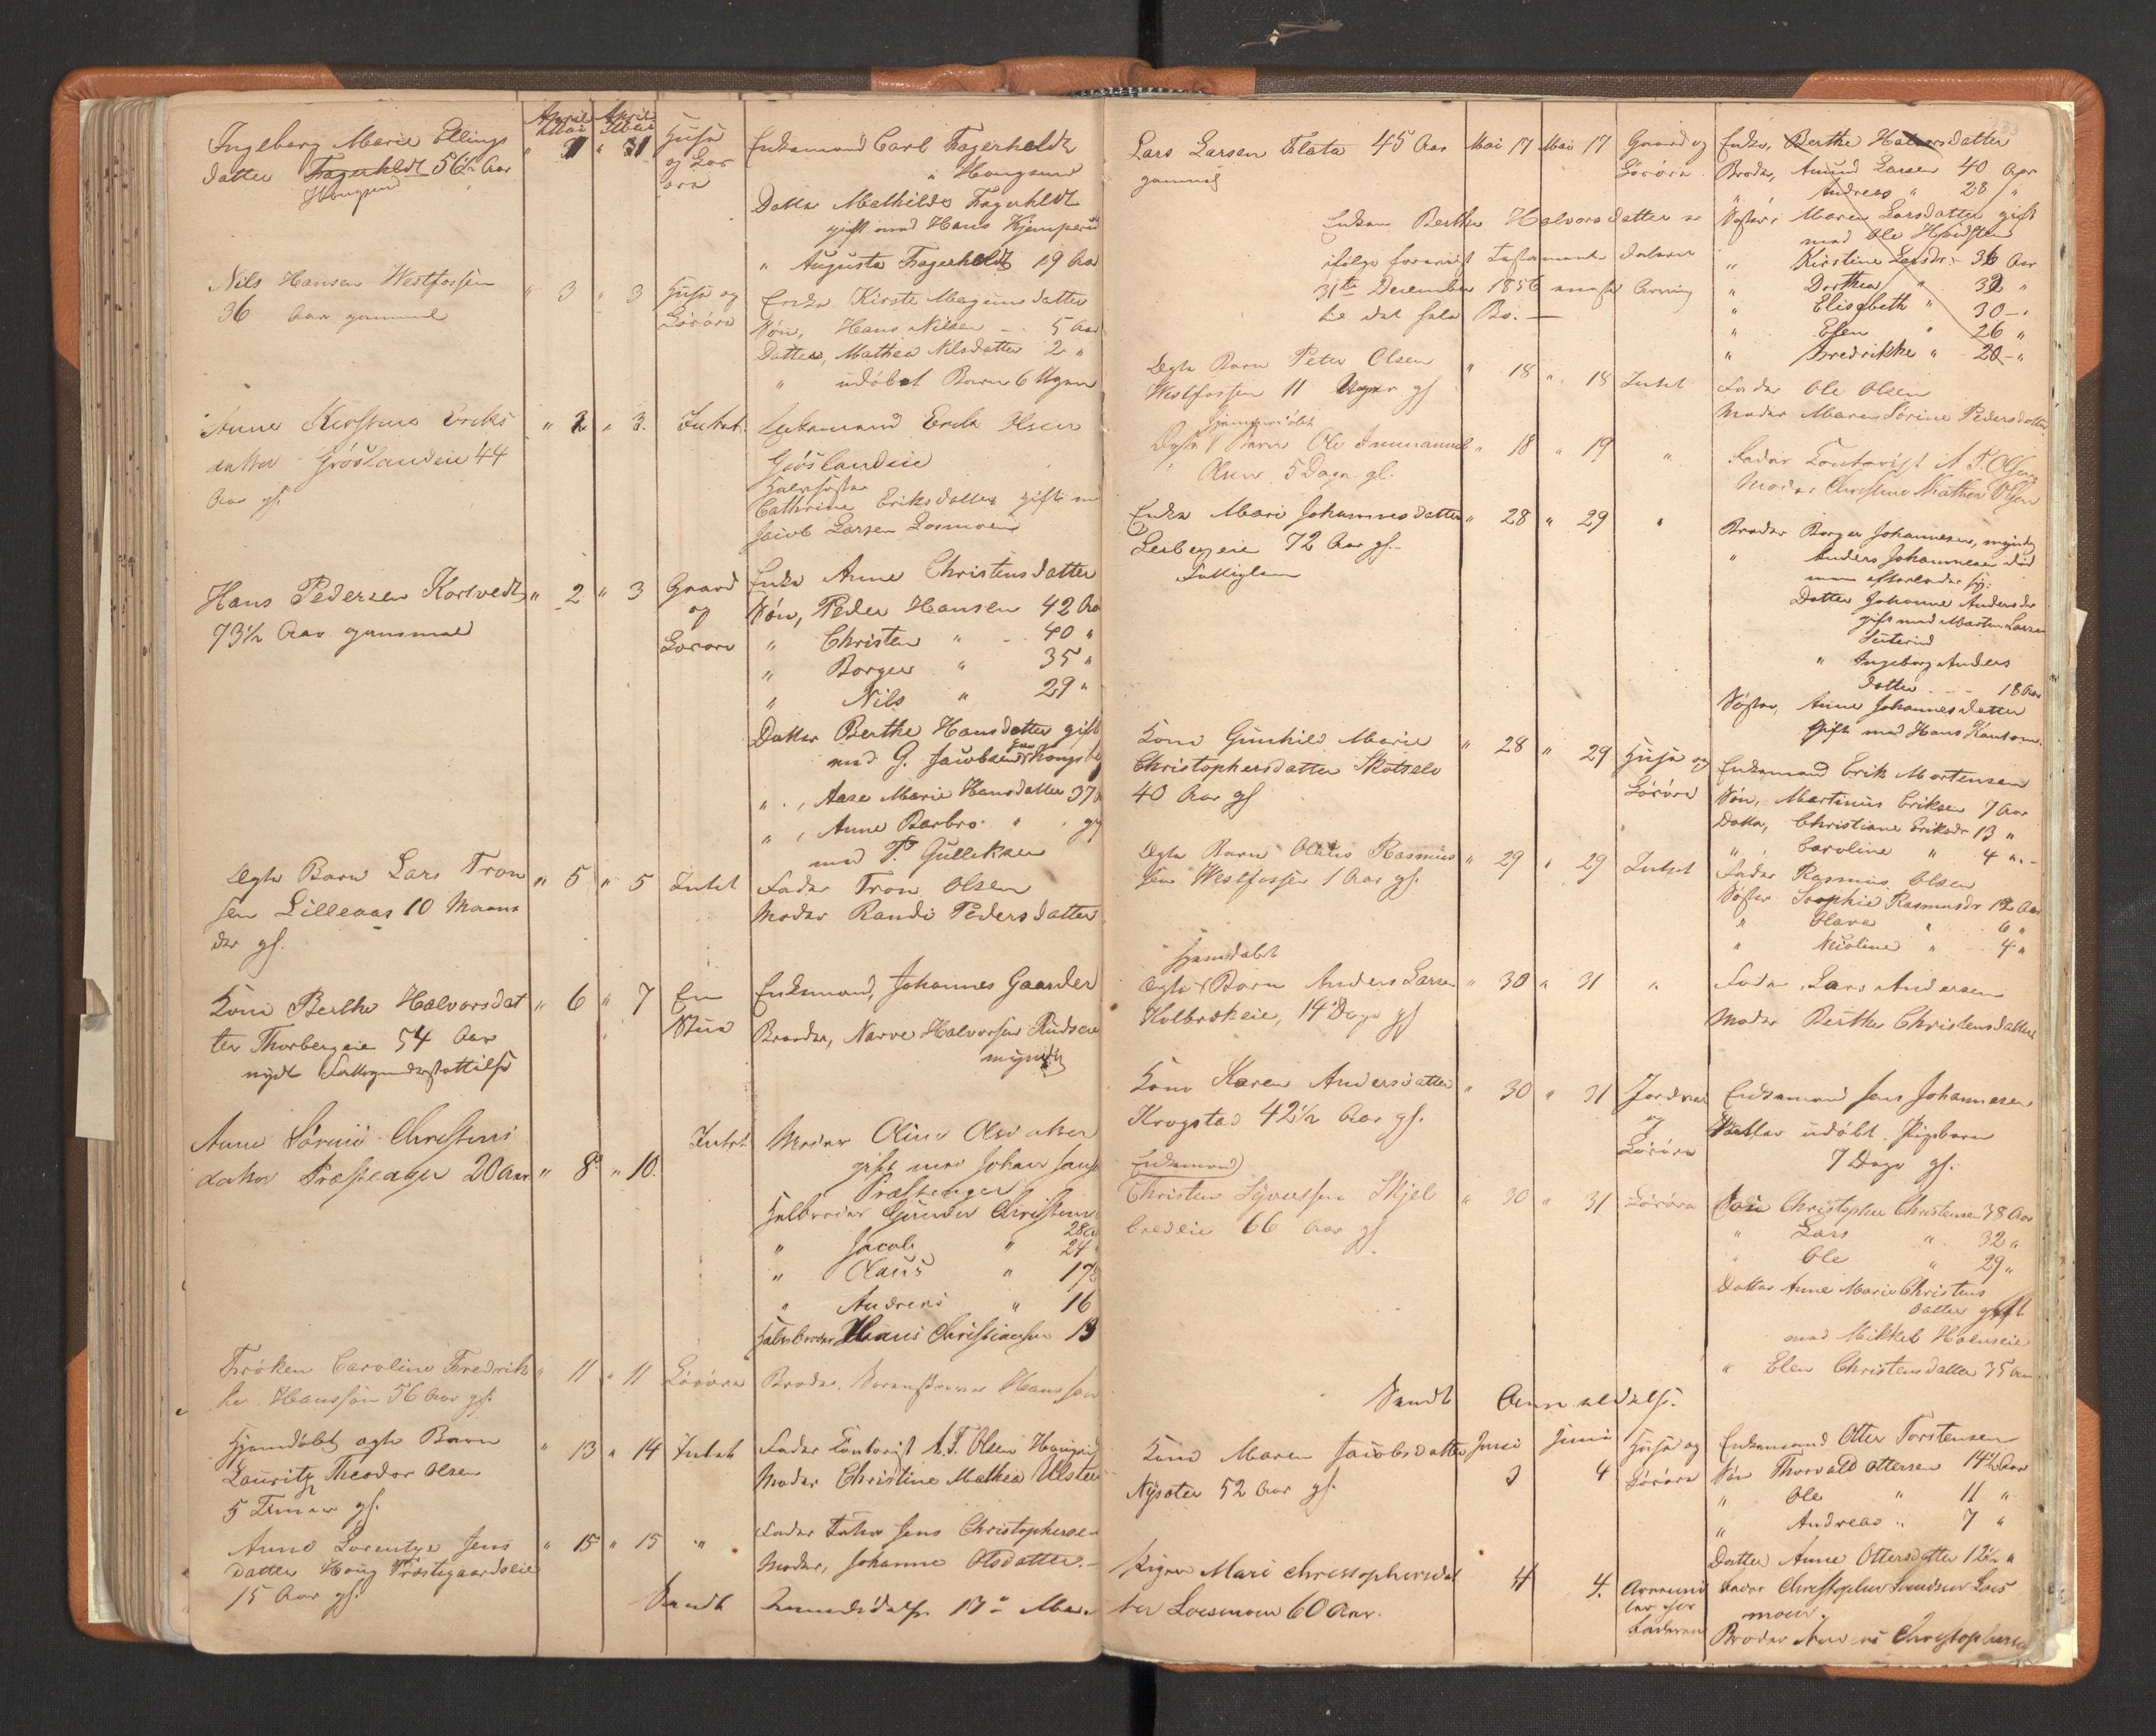 Ingeborg Marie Ellings
datter Fagerheldt 56½ Aar
Hougsund
April Mai
April Mai
31
31
Huse og Lösöre
Enkemand Carl Fagerholdt
" Hougsund
Datter Mathilde Fagerholdt
gift med Hans
" Augusta Fagerholdt 19 Aar
Nils Hansen Westfossen
36 Aar gammel
" 3 " 3
Huse og
Lösöre
Enke Kirsti Magnusdatter
Søn, Hans Nilsen - 5 Aar
Datter, Mathea Nilsdatter 2 "
" udöbt Barn 6 Uger
Anne Kirstine Eriks
datter Gröslandeie 44
Aar gl.
" 2 " 3.
Intet.
Enkemand Erik Olsen
Gröslandeie
Halvsøster
Cathrine Eriksdatter gift med
Jacob Larsen Losmoen
Hans Pedersen Kortvedt
73½ Aar gammel
" 2 " 3
Gaard
og
Lösöre
Enke Anne Christensdatter
Søn, Peder Hansen 42 Aar
" Christen " 40 "
" Borger " 35 "
" Nils " 29 "
Datter Berthe Hansdatter gift
med G. Jacobsen Kongsb
" , Aase Marie Hansdatter 37
" , Anne Barbro " gift
med P. Gulliksen
Ægte Barn Lars Tron
sen Lilleaas 10 Maane
der gl.
" 5 " 5
Intet
Fader Tron Olsen
Moder Randi Pedersdatter
Kone Berthe Halvorsdat
ter Thorbergeie 54 Aar
nydt Fattigunderstøttelse
" 6 " 7
En
Stue
Enkemand, Johannes Gaarder
Broder, Narve Halvorsen Rudseie
myndig
Anne Sörine Christens
datter Præsteager 20 Aar
" 8 " 10.
Intet
Moder Oline Olsdatter
gift med Johan
Præsteager
Halbroder Gunder Christensen
28 Aar
" Jacob " 24 "
" Claus " 17½
" Andreas " 16
Halvbroder Hans Christiansen 13
Frøken Caroline Fredrik
ke Hansson 56 Aar gl.
" 11 " 11
Lösöre
Broder, Hansson
Hjemdöbt ægte Barn
Lauritz Theodor Olsen
5 Timer gl.
" 13 " 14
Intet
Fader Contorist A. T. Olsen Hougsund
Moder Christine Mathea Olsen
Anne Lorentze Jens
datter Houg Præstegaardseie
15 Aar gl.
" 15 " 15
"
Fader Jens Christophersen
Moder, Johanne Olsdatter.-
Sendt Anmeldelse 17de Mai
Lars Larsen Flata 45 Aar
gammel
Mai 17 Mai 17
Gaard og
Lösöre
Enke, Berthe Halvorsdatter
Broder, Amund Larsen 40 Aar
" Andreas " 28 "
Søster, Maren Larsdatter gift
med Ole
" Kirstine Larsdr. 36 Aar
" Dorthea " 32 "
" Elisabeth " 30 - "
" Elen " 26 "
" Fredrikke " 20 - "
Enken Berthe Halvorsdatter er
ifølge forevist Testamente dateret
31te December 1856 eneste Arving
i det hele Bo. —
Ægte Barn Peter Olsen
Westfossen 11 Uger gl
" 18 " 18
Intet
Fader Ole Olsen
Moder Maren Sörine Pedersdatter
Hjemmedöbt
Ægte Barn Ole Immanuel
Olsen 5 Dage gl.
" 18 " 19
"
Fader Contorist A. T. Olsen
Moder Christine Mathea Olsen
Enke Mari Johannesdatter
Lerbergeie 72 Aar gl.-
Fattiglem
" 28 " 29
"
Broder Borger Johannesen, myndig
" Anders Johannesen død
men efterlader sig:
Datter Johanne Andersdr
gift med Martin Larsen
" Ingeborg Anders
datter - - - 18 Aar
Søster, Anne Johannesdatter
Gift med Hans
Kone Gunhild Marie
Christophersdatter Skotselv
40 Aar gl
" 28 " 29
Huse og
Lösöre
Enkemand Erik Mortensen
Søn, Martinus Eriksen 7 Aar
Datter, Christiane Eriksdr 13 "
" , Caroline " 4 " -
Ægte Barn Rasmus
sen Westfossen 1 Aar gl.
" 29 " 29
Intet
Fader Rasmus Olsen
Søster Sophie Rasmusdr 12 Aar
" Olava " 6 "
" Nicoline " 4 "
Hjemdøbt
ægte Barn Anders Larsen
Kolbrekeie, 14 Dage gl
" 30 " 31
"
Fader, Lars Andersen
Moder Berthe Christensdatter
Kone Karen Andersdatter
Krogstad 42½ Aar gl.
" 30 " 31
og
Lösöre
Enkemand Jens Johannesen
Datter udöbt Pigebarn
7 Dage gl.
Enkemand
Christen Syversen Skjel
bredeie 66 Aar gl
" 30 " 31
Lösöre
Søn Christopher Christensen 38 Aar
" Lars " 32 "
" Ole " 29 "
Datter Anne Marie Christens
datter gift
med Mikkel
" Elen Christensdatter 35 Aar
Sendt Anmeldelse.
Kone Maren Jacobsdatter
Nysæter 52 Aar gl.
Juni 3
Juni 4
Huse og
Lösöre
Enkemand Otter Torstensen
Søn Thorvald Ottersen 14½ Aar
" Ole " 11 "
" Andreas " 7 "
Datter Anne Ottersdatter 12½ "
Pigen Mari Christophersdat
ter Loesmoen 60 Aar.
4
4.
Faderen
Fader Christopher Loes
moen.
Broder Christophersen